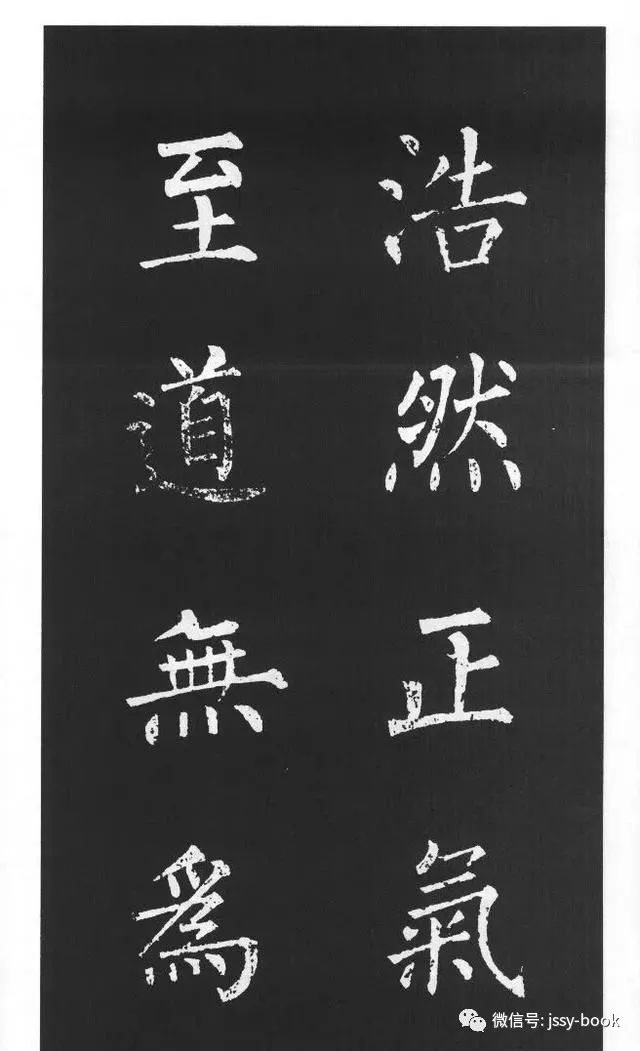 浩然正氣
至道無為
微信号: jssy-book